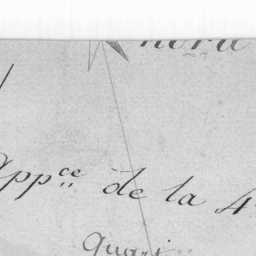 nord
App.ce de la 4
Quai